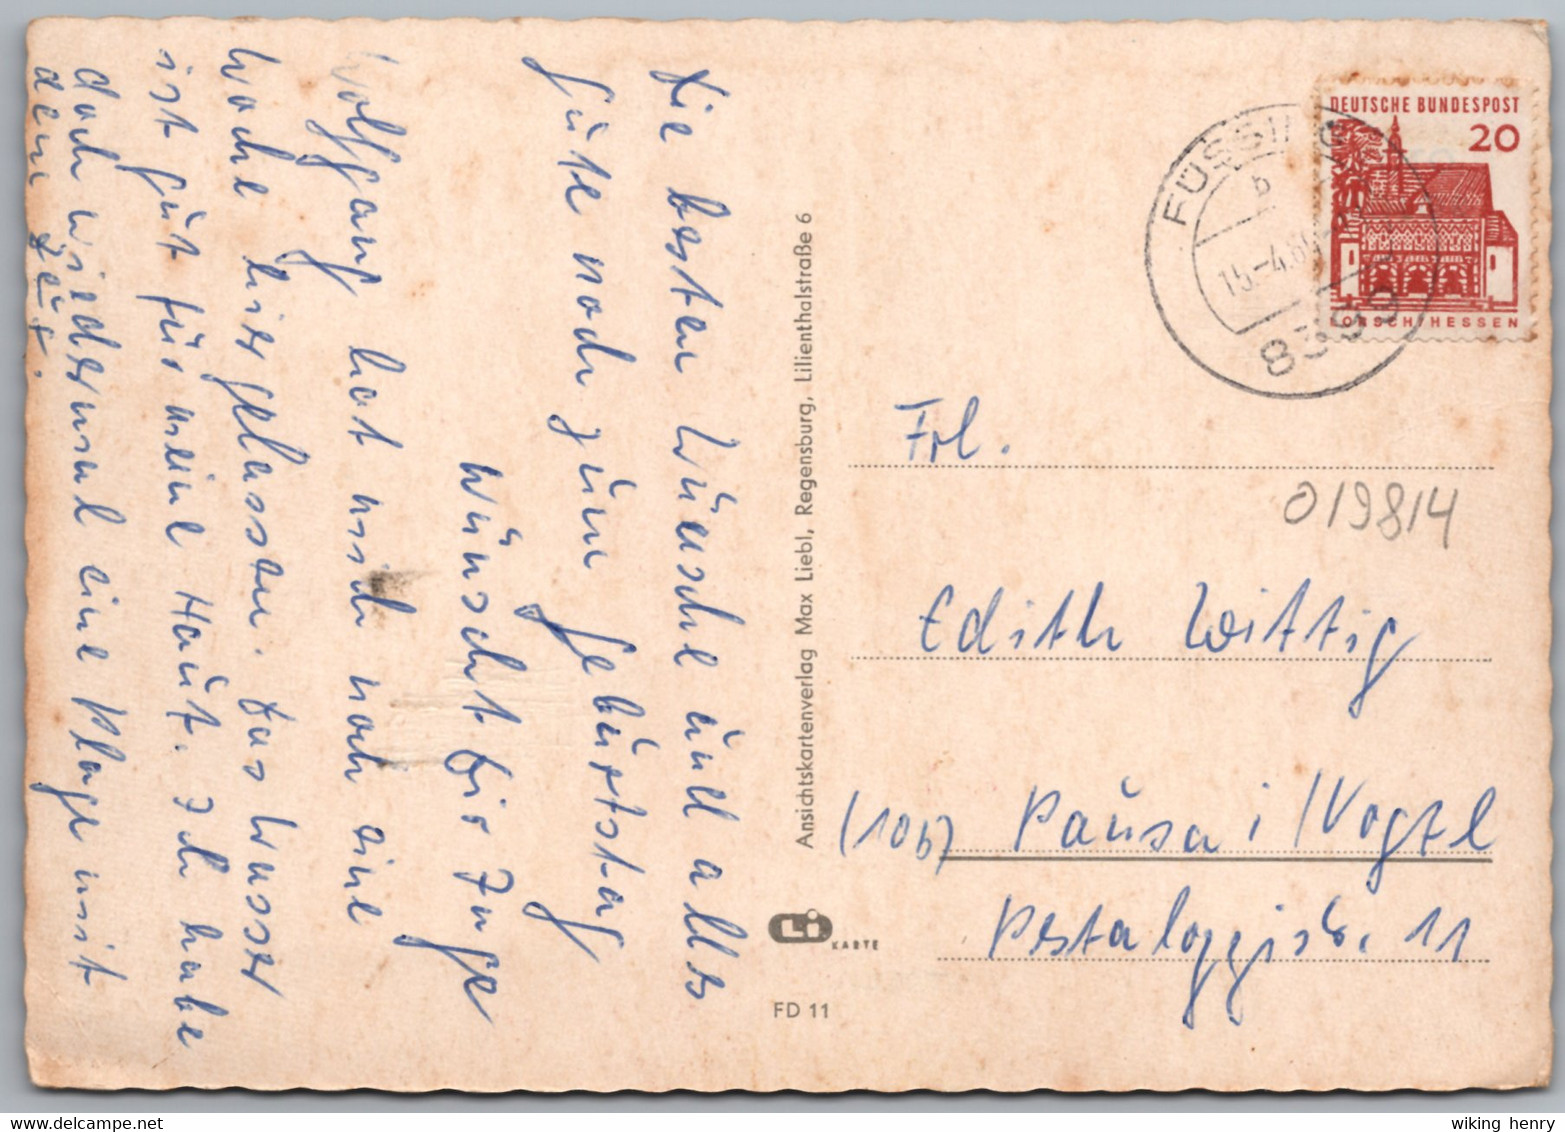 Die besten Wünsche und alles
Gute noch zum Geburtstag
wünscht Dir Inge
Wolfgang hat mich noch eine
Woche hier gelassen. Das Wasser
ist gut für meine Haut. Ich habe
doch wiedermal eine Plage mit
dem Zeug.
Ansichtskartenverlag Max Liebl, Regensburg, Lilienthalstraße 6
Li
KARTE
FD 11
DEUTSCHE BUNDESPOST
20
LORSCH/HESSEN
b
15.-4.
8399
Frl.
019814
Edith Wittig
(10b) Pausa i/Vogtl
Pestalozzistr. 11
wiking henry